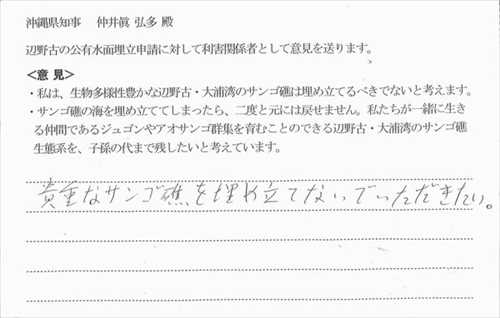 沖縄県知事　仲井眞 弘多 殿
辺野古の公有水面埋立申請に対して利害関係者として意見を送ります。
＜意 見＞
・私は、生物多様性豊かな辺野古・大浦湾のサンゴ礁は埋め立てるべきでないと考えます。
・サンゴ礁の海を埋め立ててしまったら、二度と元には戻せません。私たちが一緒に生き
る仲間であるジュゴンやアオサンゴ群集を育むことのできる辺野古・大浦湾のサンゴ礁
生態系を、子孫の代まで残したいと考えています。
貴重なサンゴ礁を埋め立てないでいただきたい。